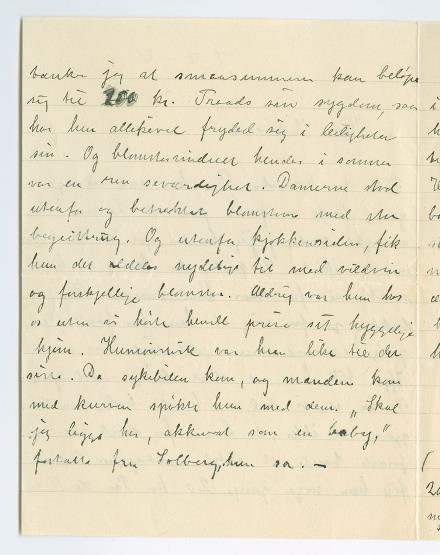 tænker jeg at smaasummerne kan beløpe
sig til 200 kr. Trods sin sygdom, saa
har hun allikevel frydet sig i leiligheten
sin. Og blomstervinduet hendes i sommer
var en ren seværdighet. Damerne stod
utenfor og betraktet blomsterne med stor
begeistring. Og utenfor kjøkkensiden, fik
hun det aldeles nydelige til med vildvin
og forskjellige blomster. Aldrig var hun hos
os uten vi hørte hende prise sit hyggelige
hjem. Humoristisk var hun like til det
siste. Da sykebilen kom, og mændene kom
med kurven spøkte hun med dem. „Skal
jeg ligge her, akkurat som en baby,"
fortalte fru Solberg, hun sa. —